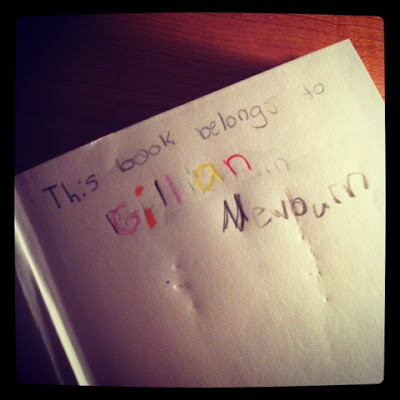 This book belongs to
Gillian
Newburn